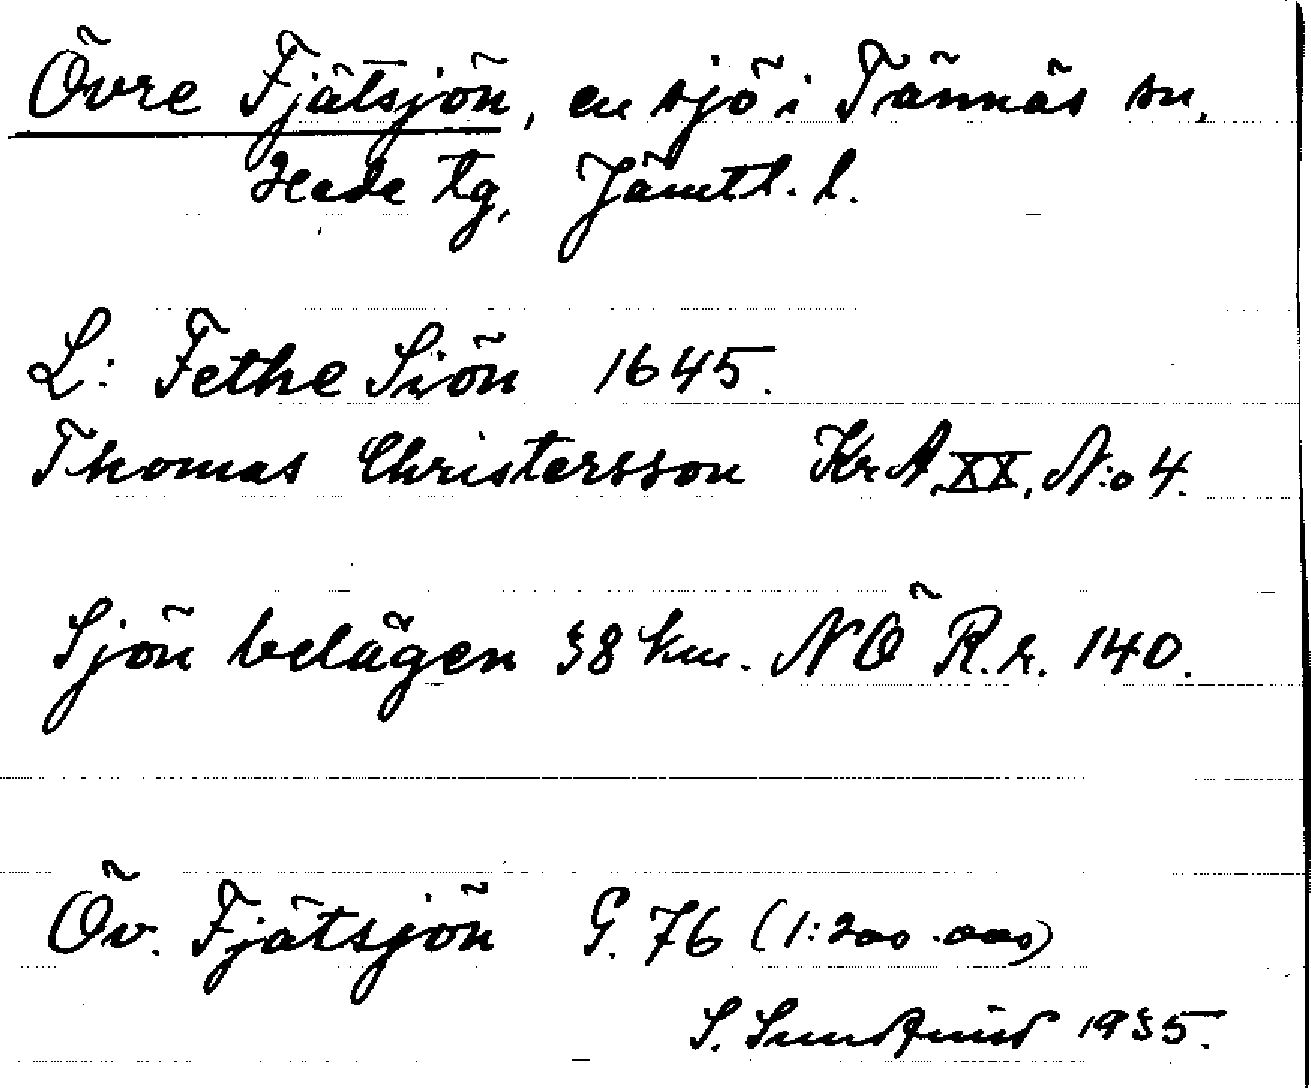 Övre Fjätsjön, en sjö i Tännäs sn,
Hede tg, Jämtl. l.
L: Fethe Siön 1645.
Thomas Christersson Kr.A. XX, N:o 4.
Sjön belägen 38 km. NÖ R.r. 140.
Öv. Fjätsjön G. 76 (1:200.000)
S. Sundqvist 1935.